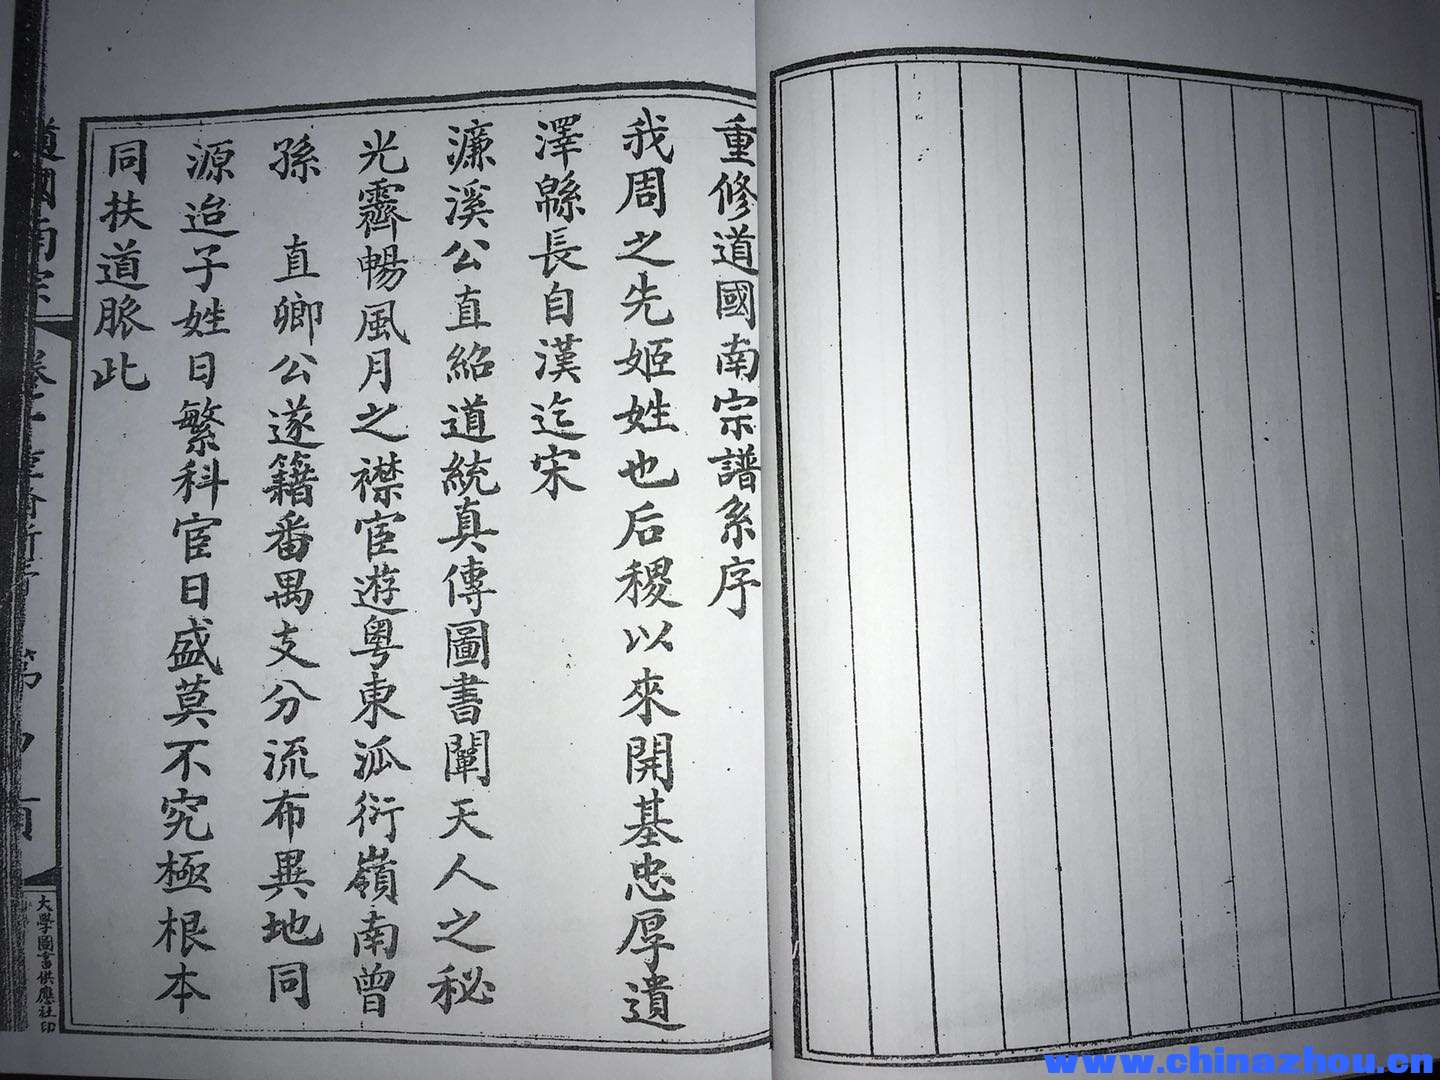 重修道國南宗譜系序
我周之先姬姓也后稷以來開基忠厚遺
澤緜長自漢迄宋
濂溪公直紹道統真傳圖書闡天人之秘
光霽暢風月之襟宦遊粵東泒衍嶺南曾
孫　直卿公遂籍番禺支分流布異地同
源迨子姓日繁科宦日盛莫不究極根本
同扶道脈此
道國南宗
大學圖書供應社印
www.chinazhou.cn